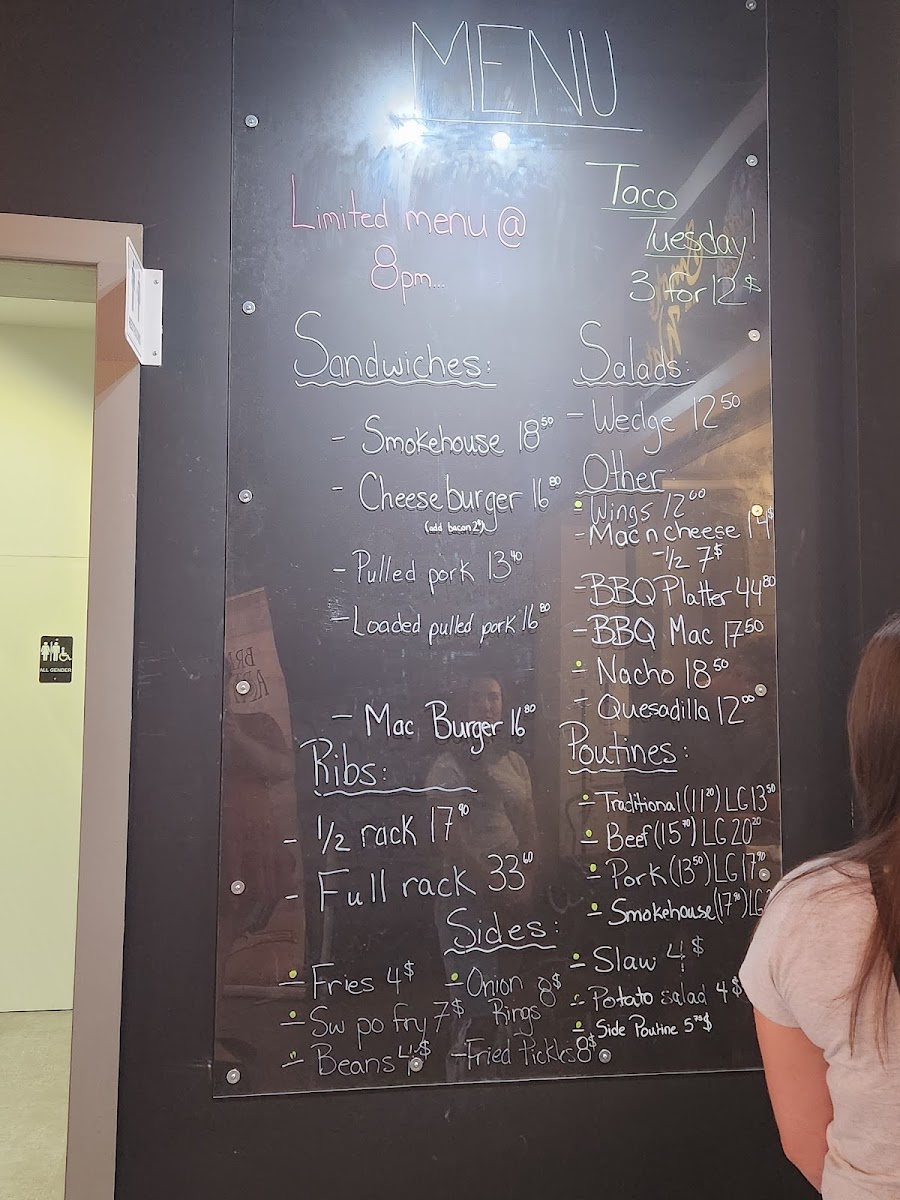 MENU
Limited menu @
8pm...
Taco
Tuesday!
3 for 12$
Sandwiches:
- Smokehouse 18 50
- Cheeseburger 16 80
(add bacon 2$)
- Pulled pork 13 40
- Loaded pulled pork 16 80
- Mac Burger 16 80
Ribs:
- 1/2 rack 17 90
- Full rack 33 60
Salads:
- Wedge 12 50
Other:
- Wings 12 00
- Mac n cheese 14$
- 1/2 7$
- BBQ Platter 44 80
- BBQ Mac 17 50
- Nacho 18 50
- Quesadilla 12 00
Poutines:
- Traditional (11 20) LG 13 50
- Beef (15 70) LG 20 20
- Pork (13 50) LG 17 90
- Smokehouse (17 90) LG
Sides:
- Fries 4$
- Sw po fry 7$
- Beans 4$
- Onion Rings 8$
- Fried Pickles 8$
- Slaw 4$
- Potato salad 4$
- Side Poutine 5 70$
ALL GENDER